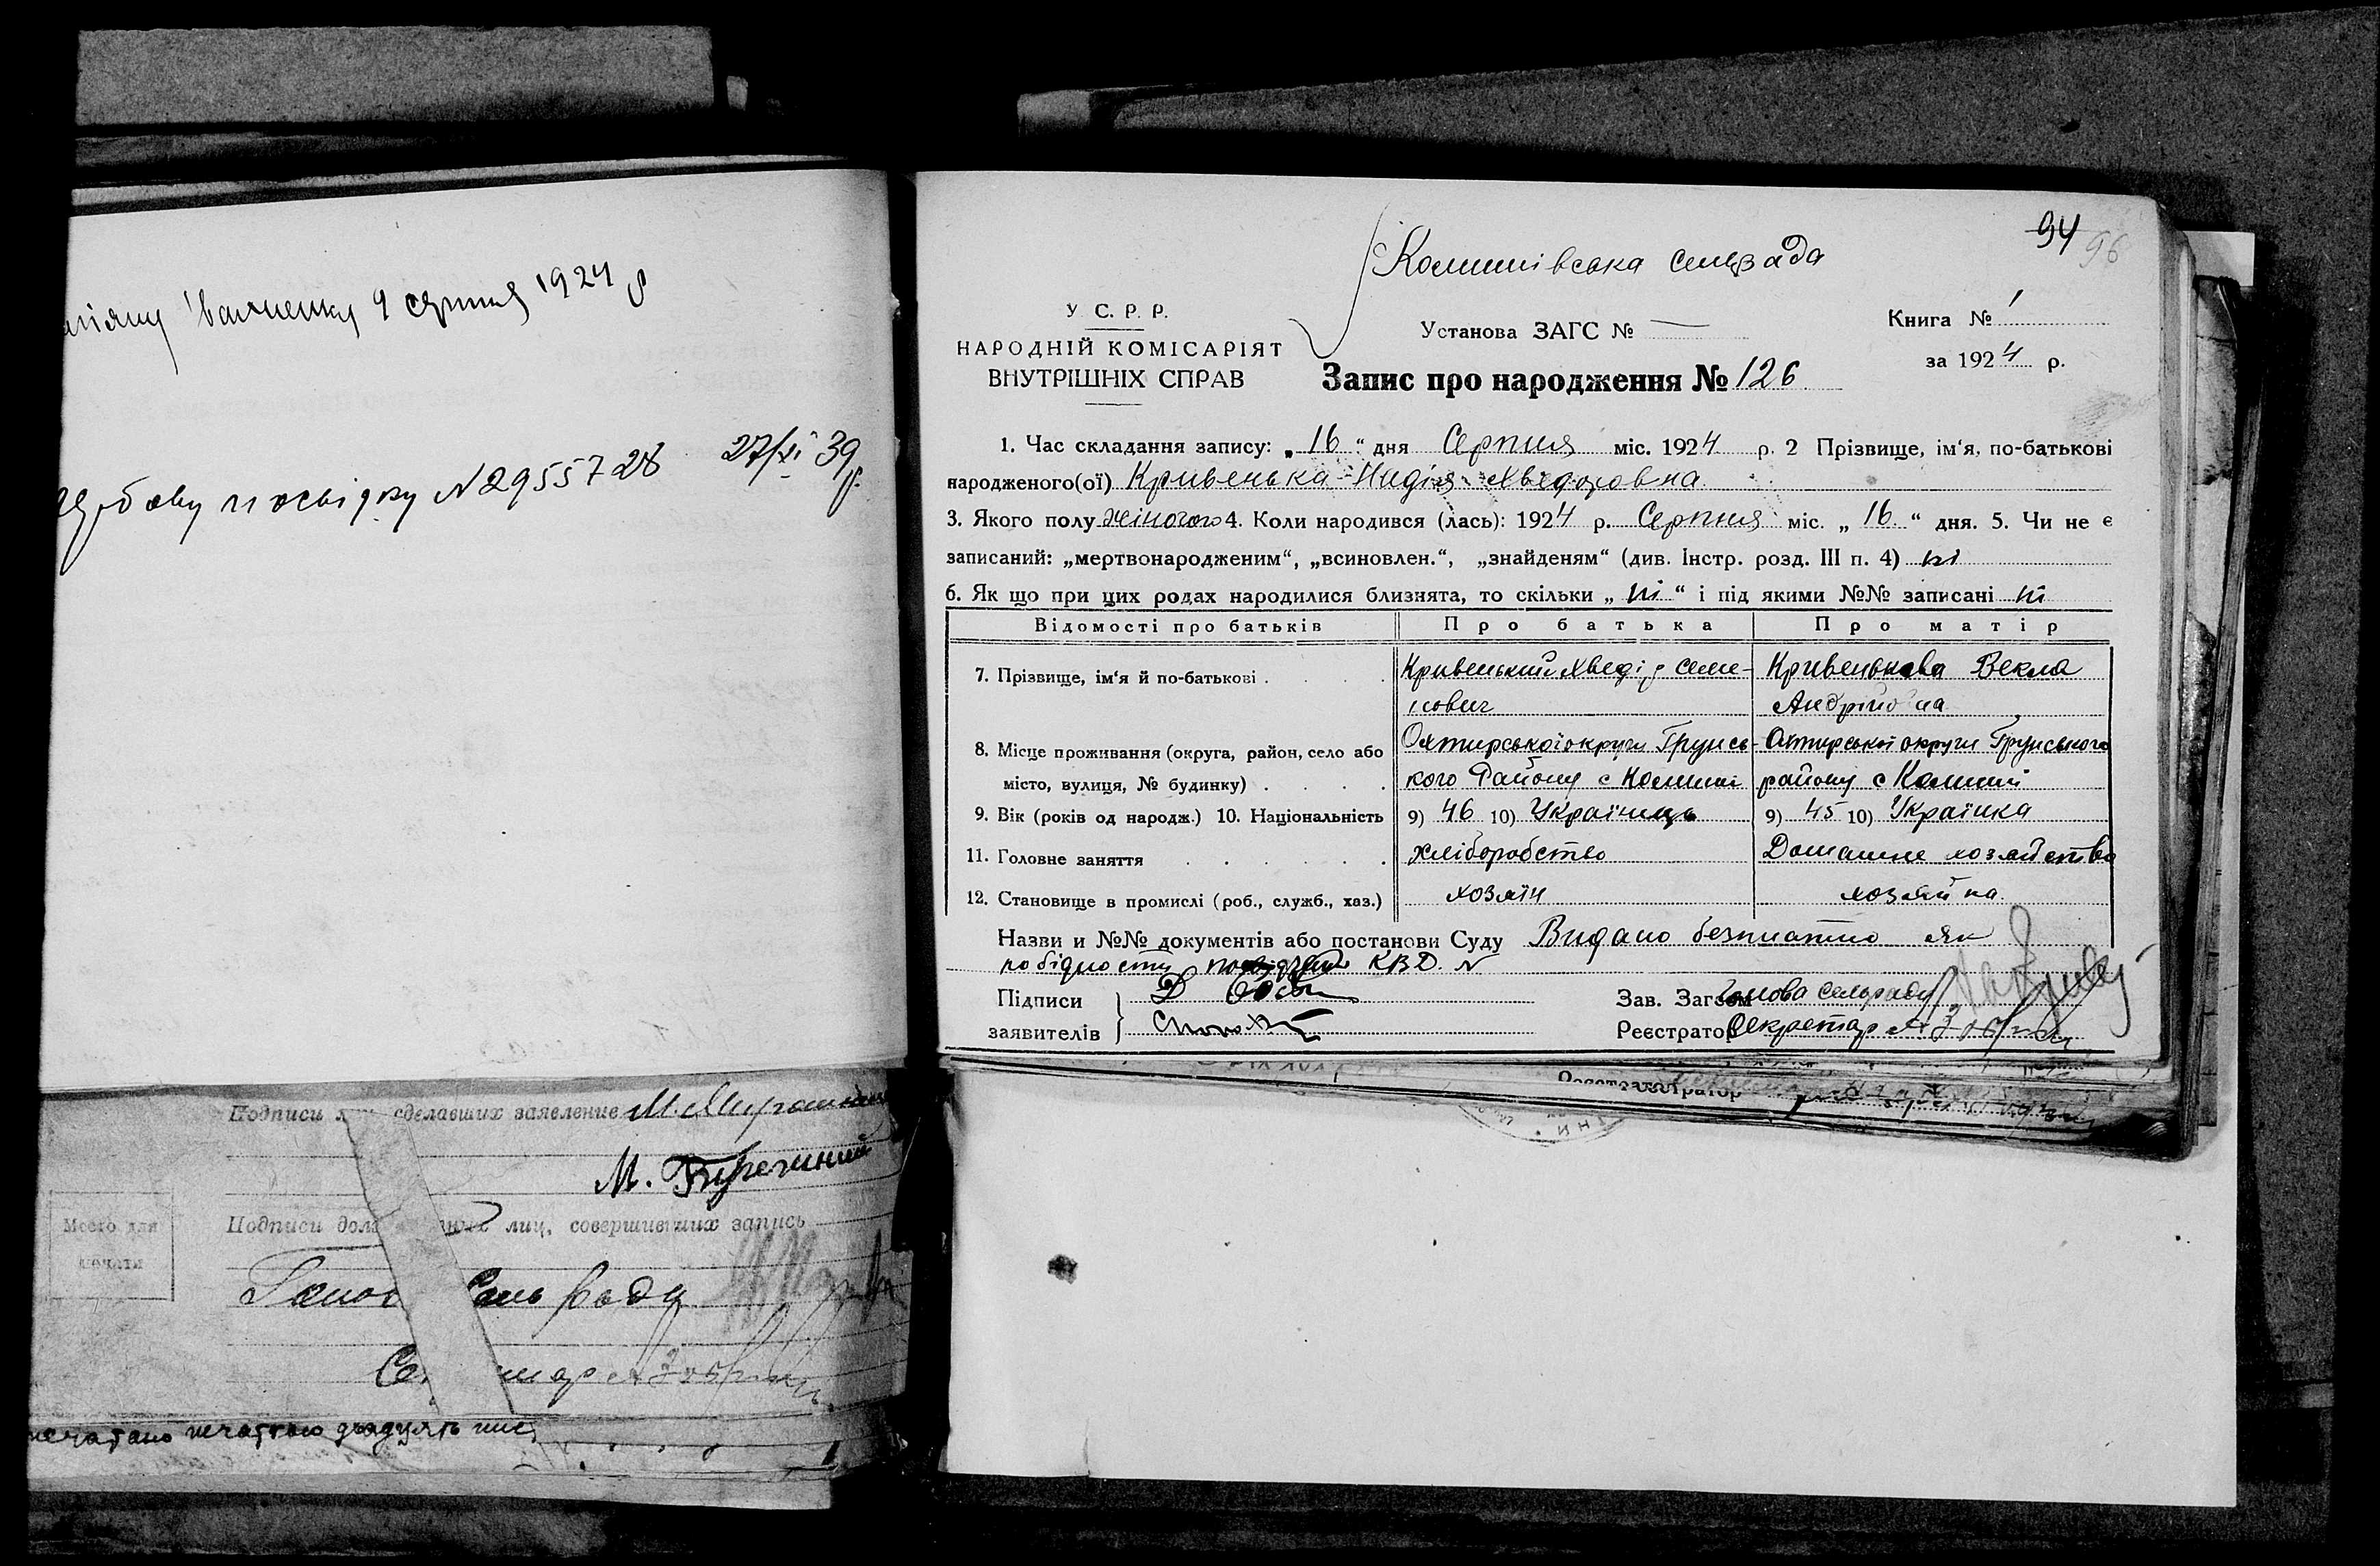 Іваненку 9 серпня 1924 р
посвідку N 2955728 27/XI 39 р.
Подписи лиц сделавших заявление М. Мирошни
М.
Место для
печати
Подписи долж ных лиц, совершивших запись
Голов Сельради
Се тар
печатано печаткою двадцять
94 96
Комишівська сельрада
У. С. Р. Р.
НАРОДНІЙ КОМІСАРІЯТ
ВНУТРІШНІХ СПРАВ
Установа ЗАГС № —
Книга № 1
за 1924 р.
Запис про народження № 126
1. Час складання запису: „16“ дня Серпня міс. 1924 р. 2 Прізвище, ім‘я, по-батькові
народженого(ої) Кривенька Надія Хведоровна
3. Якого полу жіночого 4. Коли народився (лась): 1924 р. Серпня міс. „16“ дня. 5. Чи не є
записаний: „мертвонародженим“, „всиновлен.“, „знайденям“ (див. Інстр. розд. III п. 4) ні
6. Як що при цих родах народилися близнята, то скільки „ні“ і під якими №№ записані ні
Відомості про батьків Про батька Про матір
7. Прізвище, ім‘я й по-батькові . . . . Кривенький Хведір Семе- Кривенькова Векла
нович Андрійовна
8. Місце проживання (округа, район, село або Охтирської округи Грунсь- Охтирської округи Грунського
місто, вулиця, № будинку) . . . . кого Району с Комиші району с Комиші
9. Вік (років од народж.) 10. Національність 9) 46 10) Українець 9) 45 10) Українка
11. Головне заняття . . . . . . хліборобство Домашне хозяйство
12. Становище в промислі (роб., служб., хаз.) хозяїн хозяйка
Назви и №№ документів або постанови Суду Видано безплатно як
по бідности КВД. N
Підписи
заявителів
Зав. Загсом Голова сельради
Реєстратор Секретар
Реєстратор